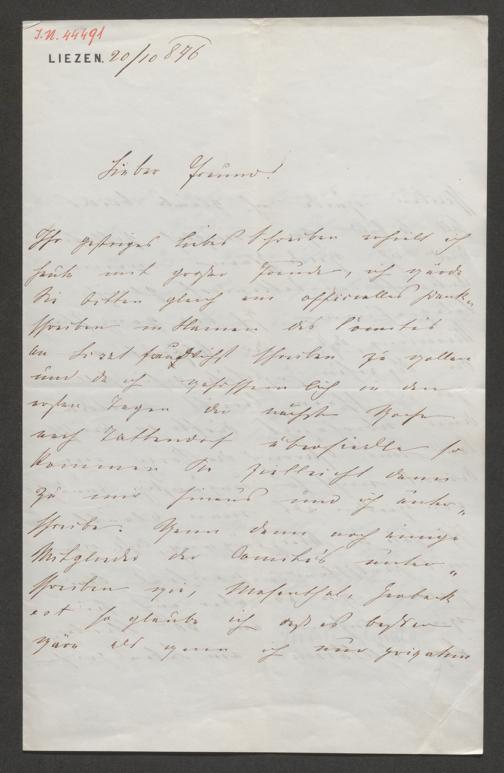 I.N. 44491
LIEZEN. 20/10 876
Lieber Freund!
Ihr gestriges liebes Schreiben erhielt ich
heute mit großer Freude, ich würde
Sie bitten gleich ein officielles Dank-
schreiben im Namen des Comités
an Liszt schreiben zu wollen
und da ich in den
ersten Tagen der nächsten Woche
nach Tattendorf übersiedle so
kommen Sie vielleicht dann
zu mir hinaus und ich unter-
schreibe. Wenn dann noch einige
Mitglieder des Comités unter-
schreiben wie, Mosenthal, Gerbeck
ect so glaube ich daß es besser
wäre als wenn ich nur privatim